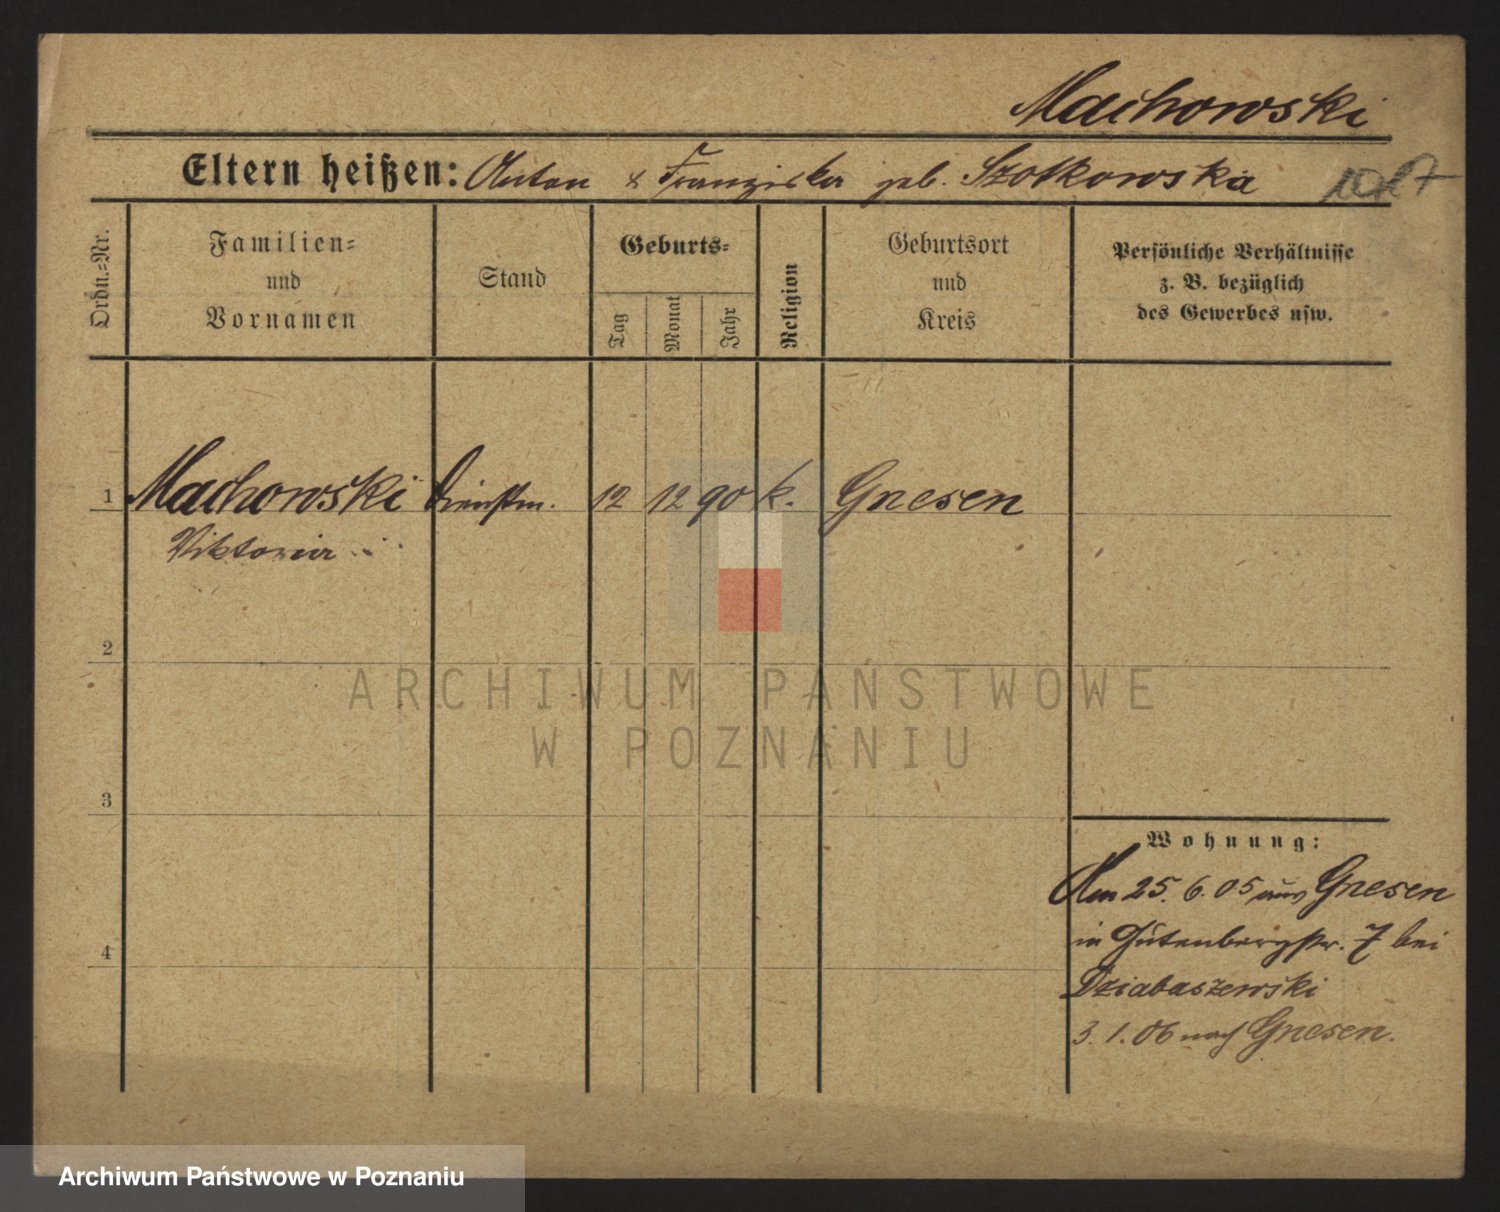 Machowski
Eltern heißen: Anton & Franziska geb. Szotkowska
Ordn.=Nr.
Familien=
und
Vornamen
Stand
Geburts=
Tag
Monat
Jahr
Religion
Geburtsort
und
Kreis
Persönliche Verhältnisse
z. B. bezüglich
des Gewerbes usw.
1 Machowski Dienstm. 12 12 90 k. Gnesen
Viktoria
2
ARCHIWUM PAŃSTWOWE
W POZNANIU
3
Wohnung:
Am 25. 6. 05 aus Gnesen
in Gutenbergstr. 7 bei
4
Dziabaszewski
3. 1. 06 nach Gnesen.
Archiwum Państwowe w Poznaniu